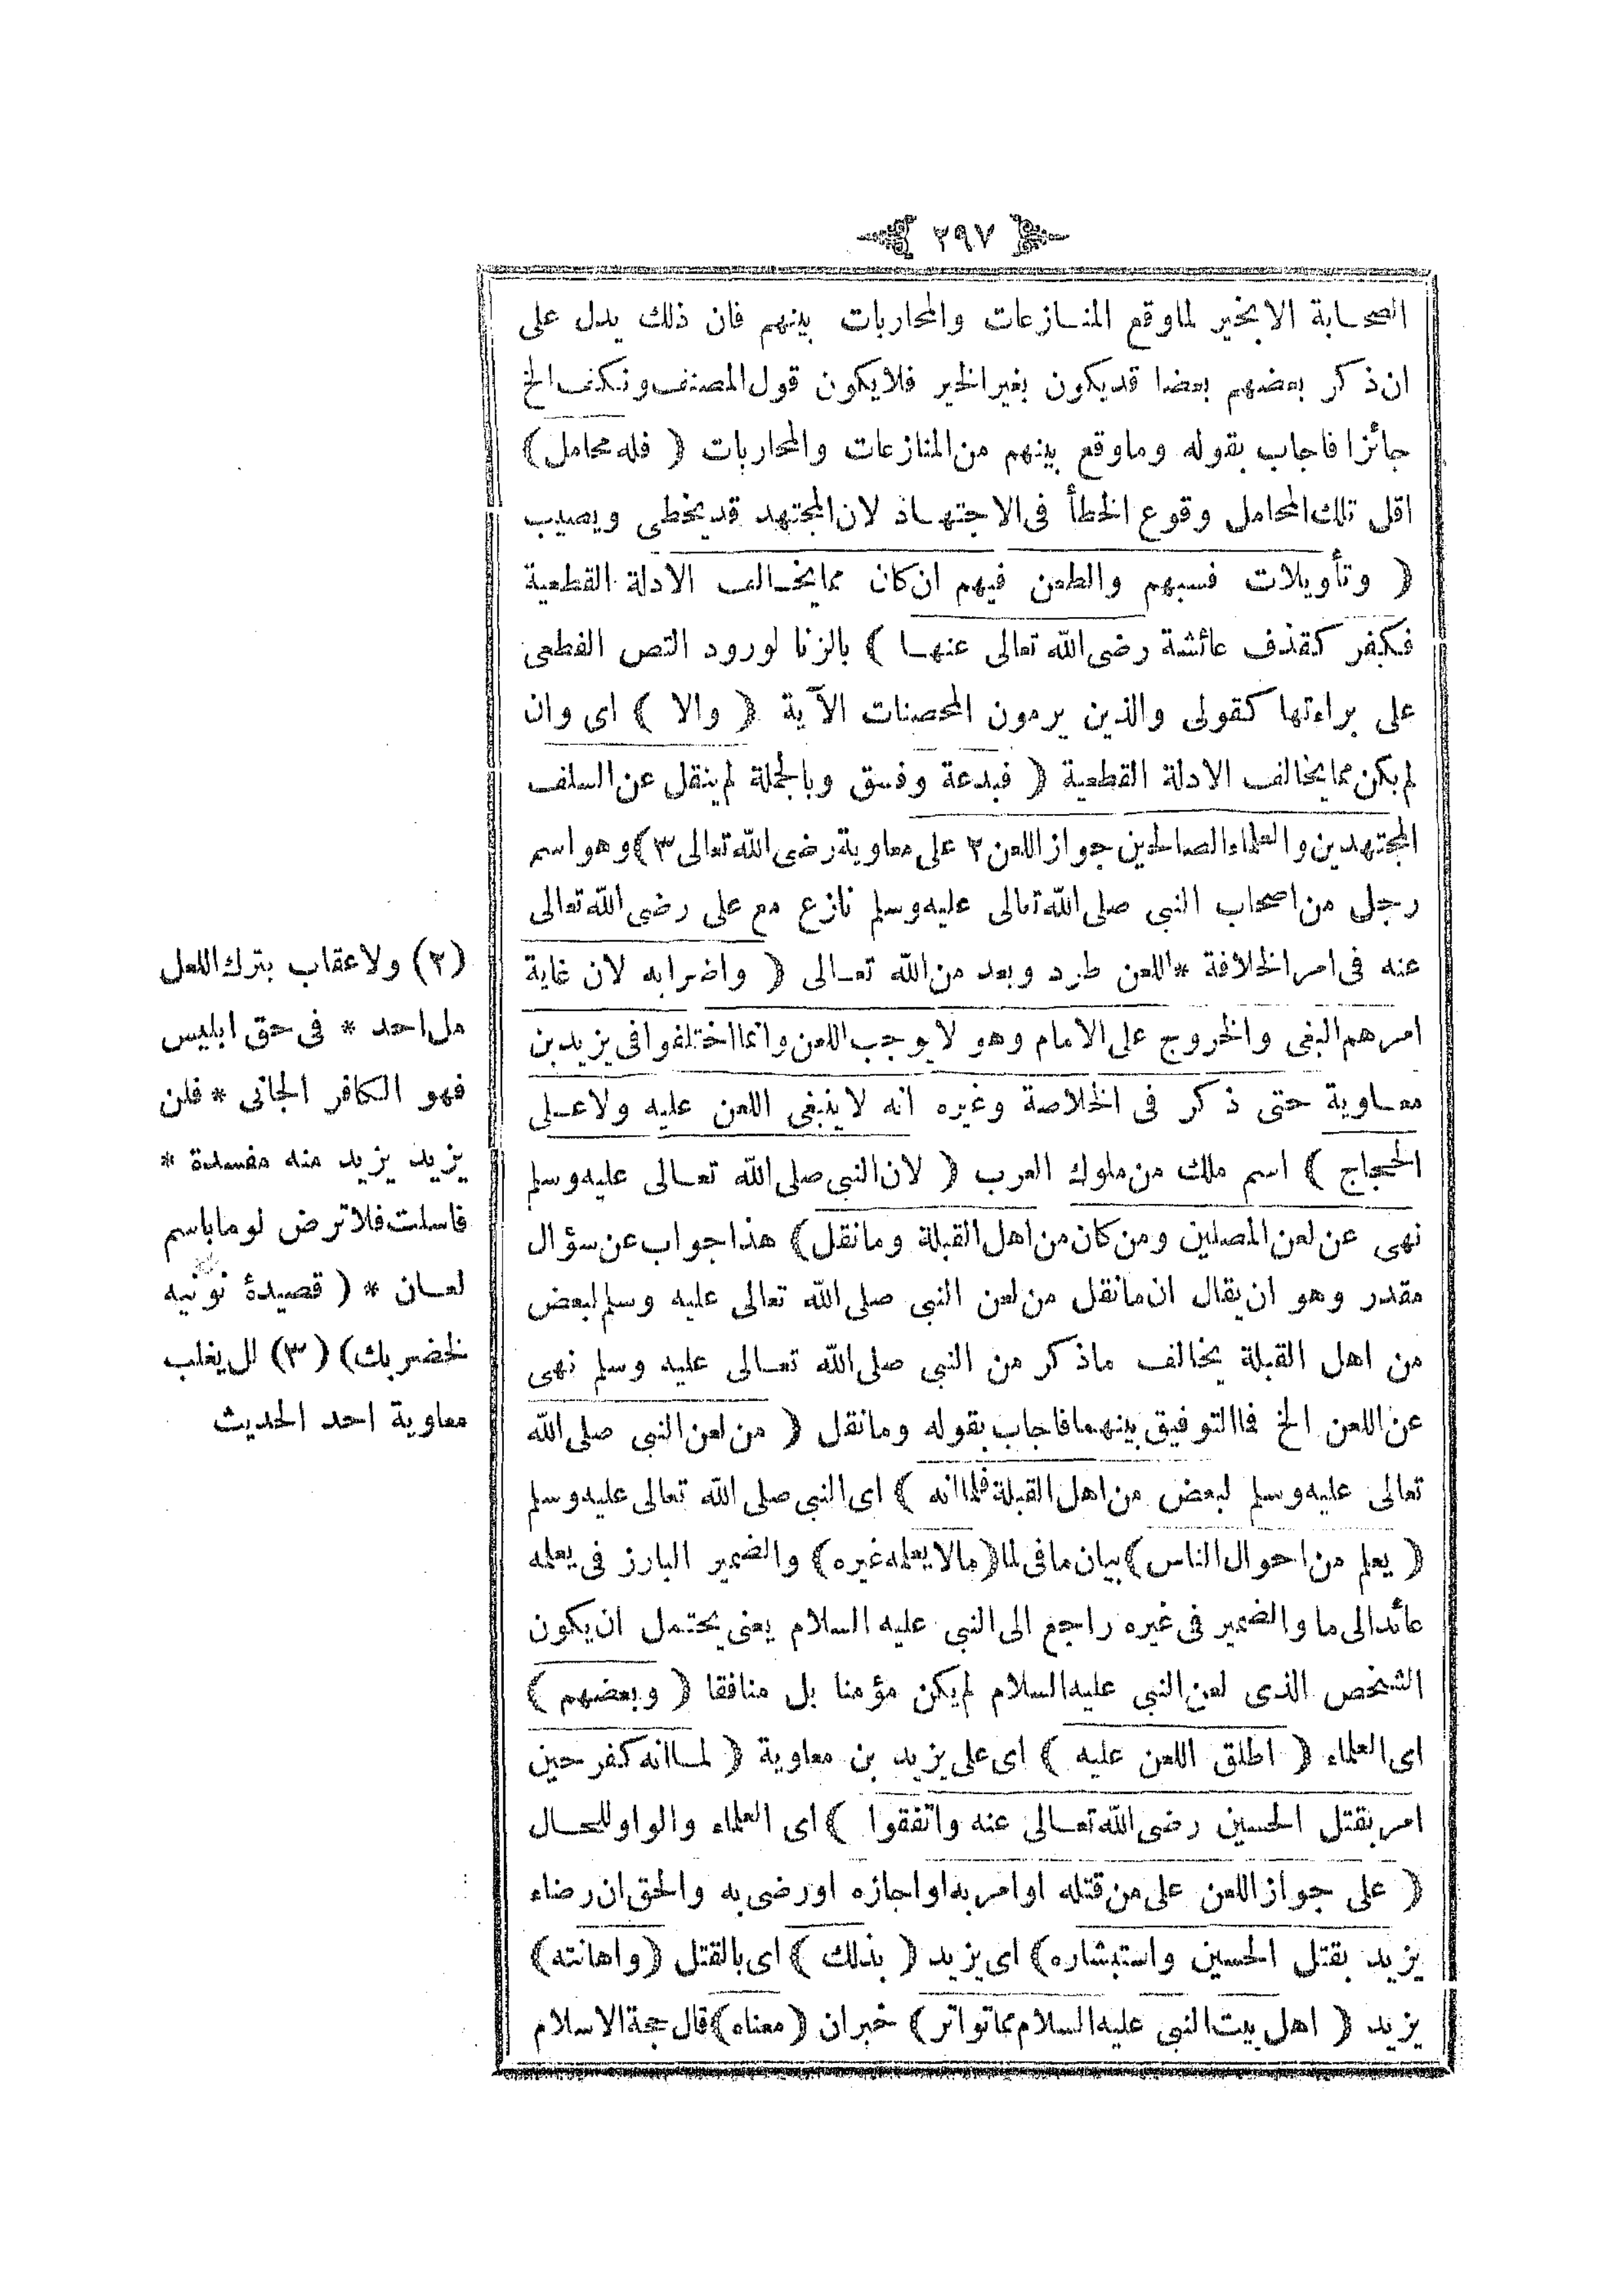 ٢٩٧
الصحابة الا بخير لما وقع المنازعات والمحاربات بينهم فان ذلك يدل على
ان ذكر بعضهم بعضا قد يكون بغير الخير فلا يكون قول المصنف ونكف الخ
جائزا فاجاب بقوله وما وقع بينهم من المنازعات والمحاربات ( فله محامل )
اقل تلك المحامل وقوع الخطأ فى الاجتهاد لان المجتهد قد يخطى ويصيب
( وتأويلات فسبهم والطعن فيهم ان كان مما يخالف الادلة القطعية
فكفر كقذف عائشة رضى الله تعالى عنها ) بالزنا لورود النص القطعى
على براءتها كقولى والذين يرمون المحصنات الآية ( والا ) اى وان
لم يكن مما يخالف الادلة القطعية ( فبدعة وفسق وبالجملة لم ينقل عن السلف
المجتهدين والعلماء الصالحين جواز اللعن ٢ على معاوية رضى الله تعالى ٣ ) وهو اسم
رجل من اصحاب النبى صلى الله تعالى عليه وسلم نازع مع على رضى الله تعالى
عنه فى امر الخلافة * اللعن طرد وبعد من الله تعالى ( واضرابه لان غاية
امرهم البغى والخروج على الامام وهو لا يوجب اللعن وانما اختلفوا فى يزيد بن
معاوية حتى ذكر فى الخلاصة وغيره انه لا ينبغى اللعن عليه ولا على
الحجاج ) اسم ملك من ملوك العرب ( لان النبى صلى الله تعالى عليه وسلم
نهى عن لعن المصلين ومن كان من اهل القبلة وما نقل ) هذا جواب عن سؤال
مقدر وهو ان يقال ان ما نقل من لعن النبى صلى الله تعالى عليه وسلم لبعض
من اهل القبلة يخالف ما ذكر من النبى صلى الله تعالى عليه وسلم نهى
عن اللعن الخ فما التوفيق بينهما فاجاب بقوله وما نقل ( من لعن النبى صلى الله
تعالى عليه وسلم لبعض من اهل القبلة فلما انه ) اى النبى صلى الله تعالى عليه وسلم
( يعلم من احوال الناس ) بيان ما فى لما ( ما لا يعلمه غيره ) والضمير البارز فى يعلمه
عائد الى ما والضمير فى غيره راجع الى النبى عليه السلام يعنى يحتمل ان يكون
الشخص الذى لعن النبى عليه السلام لم يكن مؤمنا بل منافقا ( وبعضهم )
اى العلماء ( اطلق اللعن عليه ) اى على يزيد بن معاوية ( لما انه كفر حين
امر بقتل الحسين رضى الله تعالى عنه واتفقوا ) اى العلماء والواو للحال
( على جواز اللعن على من قتله او امر به او اجازه او رضى به والحق ان رضاء
يزيد بقتل الحسين واستبشاره ) اى يزيد ( بذلك ) اى بالقتل ( واهانته )
يزيد ( اهل بيت النبى عليه السلام مما تواتر ) خبر ان ( معناه ) قال حجة الاسلام
(٢) ولا عقاب بترك اللعل
مل احد * فى حق ابليس
فهو الكافر الجانى * فلن
يزيد يزيد منه مفسدة *
فاسلت فلا ترض لوما باسم
لعان * ( قصيدهٔ نونيه
لخضر بك ) (٣) لل يغلب
معاوية احد الحديث